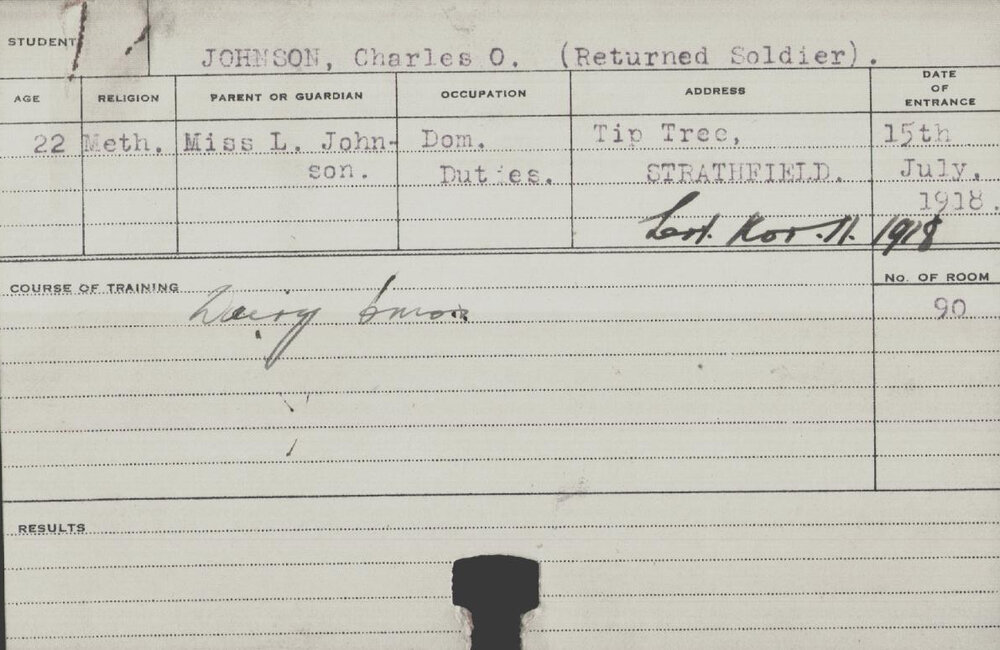 STUDENT JOHNSON, Charles O. (Returned Soldier).
AGE RELIGION PARENT OR GUARDIAN OCCUPATION ADDRESS DATE OF ENTRANCE
22 Meth. Miss L. John- Dom. Tip Tree, 15th
son. Duties. STRATHFIELD. July,
1918.
Nov. 11. 1918
COURSE OF TRAINING Dairy No. OF ROOM
90
RESULTS